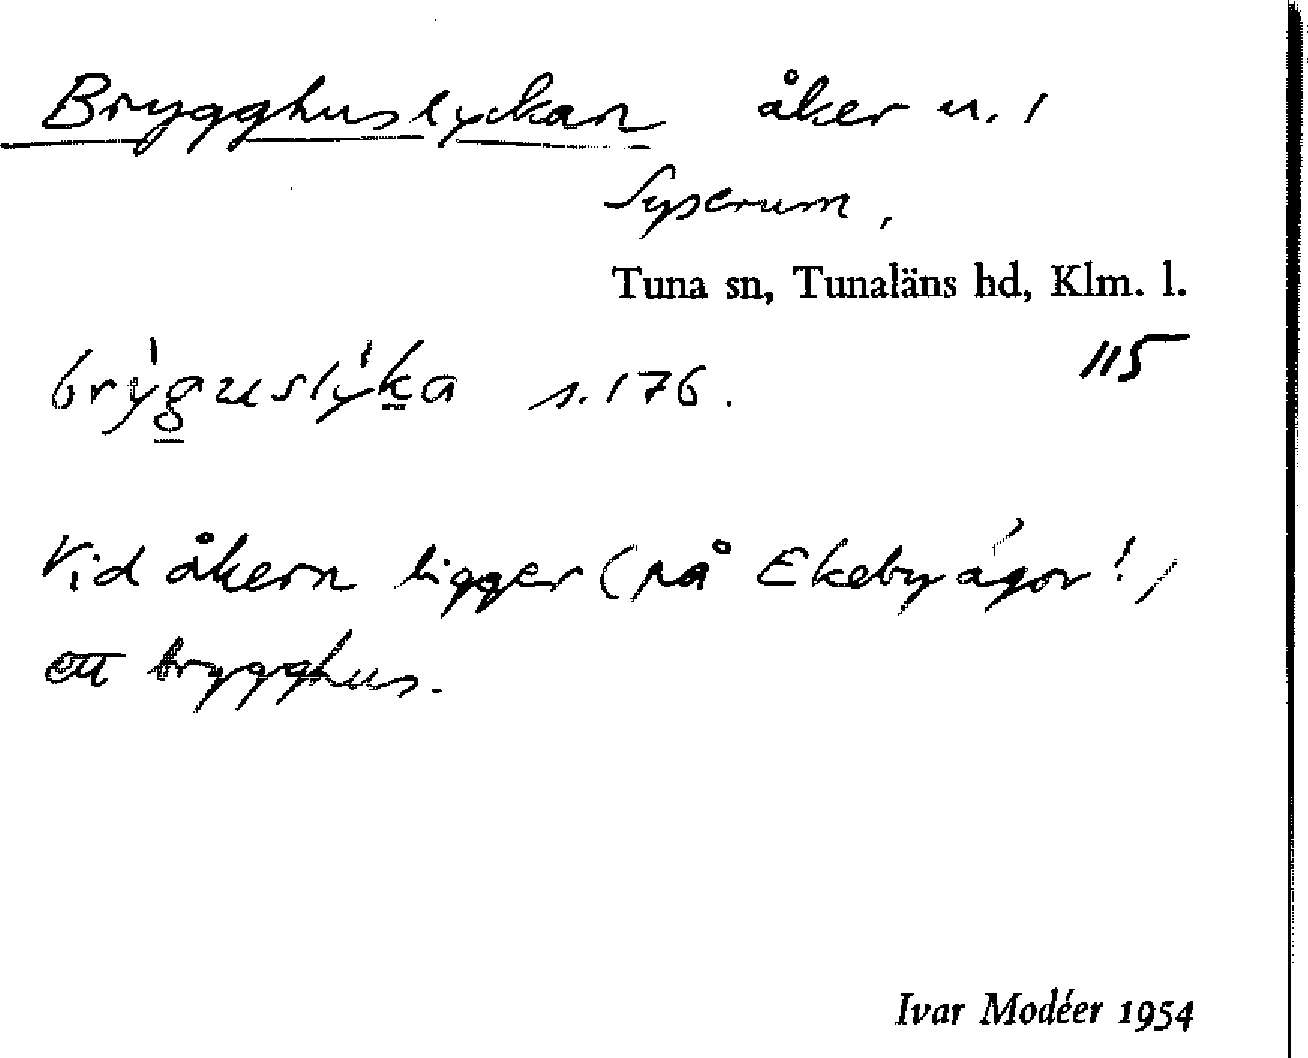 Brygghuslyckan åker u. 1
Syserum,
Tuna sn, Tunaläns hd, Klm. l.
115
brýguslýka s. 176.
Vid åkern ligger (på Ekebyägor!)
ett brygghus.
Ivar Modéer 1954